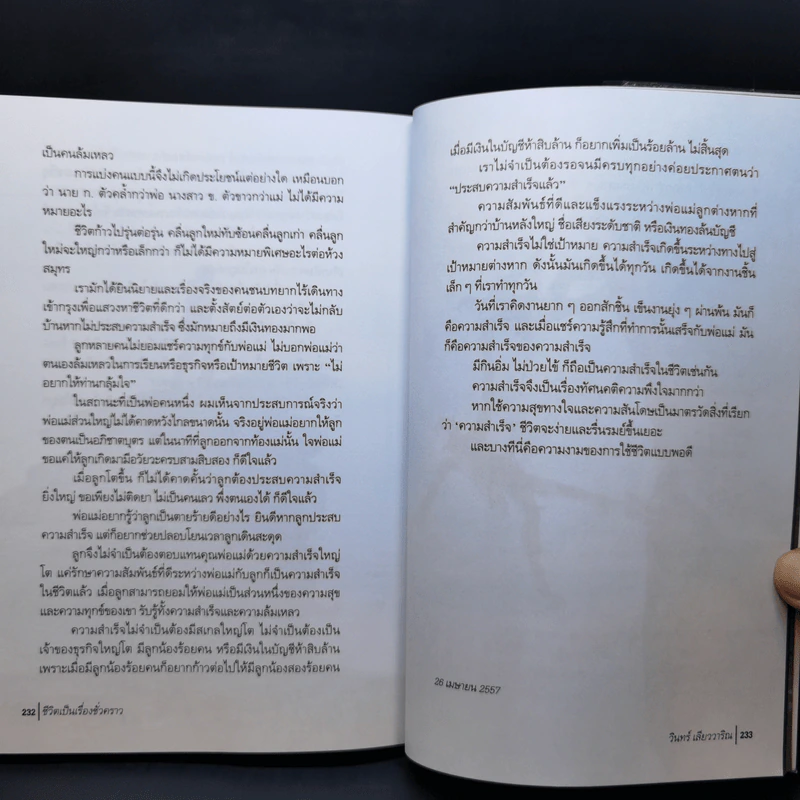 เป็นคนล้มเหลว
การแบ่งคนแบบนี้จึงไม่เกิดประโยชน์แต่อย่างใด เหมือนบอก
ว่า นาย ก. ตัวคล้ำกว่าพ่อ นางสาว ข. ตัวขาวกว่าแม่ ไม่ได้มีความ
หมายอะไร
ชีวิตก้าวไปรุ่นต่อรุ่น คลื่นลูกใหม่ทับซ้อนคลื่นลูกเก่า คลื่นลูก
ใหม่จะใหญ่กว่าหรือเล็กกว่า ก็ไม่ได้มีความหมายพิเศษอะไรต่อห้วง
สมุทร
เรามักได้ยินนิยายและเรื่องจริงของคนชนบทยากไร้เดินทาง
เข้ากรุงเพื่อแสวงหาชีวิตที่ดีกว่า และตั้งสัตย์ต่อตัวเองว่าจะไม่กลับ
บ้านหากไม่ประสบความสำเร็จ ซึ่งมักหมายถึงมีเงินทองมากพอ
ลูกหลายคนไม่ยอมแชร์ความทุกข์กับพ่อแม่ ไม่บอกพ่อแม่ว่า
ตนเองล้มเหลวในการเรียนหรือธุรกิจหรือเป้าหมายชีวิต เพราะ “ไม่
อยากให้ท่านกลุ้มใจ”
ในสถานะที่เป็นพ่อคนหนึ่ง ผมเห็นจากประสบการณ์จริงว่า
พ่อแม่ส่วนใหญ่ไม่ได้คาดหวังไกลขนาดนั้น จริงอยู่พ่อแม่อยากให้ลูก
ของตนเป็นอภิชาตบุตร แต่ในนาทีที่ลูกออกจากท้องแม่นั้น ใจพ่อแม่
ขอแค่ให้ลูกเกิดมามีอวัยวะครบสามสิบสอง ก็ดีใจแล้ว
เมื่อลูกโตขึ้น ก็ไม่ได้คาดคั้นว่าลูกต้องประสบความสำเร็จ
ยิ่งใหญ่ ขอเพียงไม่ติดยา ไม่เป็นคนเลว พึ่งตนเองได้ ก็ดีใจแล้ว
พ่อแม่อยากรู้ว่าลูกเป็นตายร้ายดีอย่างไร ยินดีหากลูกประสบ
ความสำเร็จ แต่ก็อยากช่วยปลอบโยนเวลาลูกเดินสะดุด
ลูกจึงไม่จำเป็นต้องตอบแทนคุณพ่อแม่ด้วยความสำเร็จใหญ่
โต แค่รักษาความสัมพันธ์ที่ดีระหว่างพ่อแม่กับลูกก็เป็นความสำเร็จ
ในชีวิตแล้ว เมื่อลูกสามารถยอมให้พ่อแม่เป็นส่วนหนึ่งของความสุข
และความทุกข์ของเขา รับรู้ทั้งความสำเร็จและความล้มเหลว
ความสำเร็จไม่จำเป็นต้องมีสเกลใหญ่โต ไม่จำเป็นต้องเป็น
เจ้าของธุรกิจใหญ่โต มีลูกน้องร้อยคน หรือมีเงินในบัญชีห้าสิบล้าน
เพราะเมื่อมีลูกน้องร้อยคนก็อยากก้าวต่อไปให้มีลูกน้องสองร้อยคน
232 | ชีวิตเป็นเรื่องชั่วคราว
เมื่อมีเงินในบัญชีห้าสิบล้าน ก็อยากเพิ่มเป็นร้อยล้าน ไม่สิ้นสุด
เราไม่จำเป็นต้องรอจนมีครบทุกอย่างค่อยประกาศตนว่า
“ประสบความสำเร็จแล้ว”
ความสัมพันธ์ที่ดีและแข็งแรงระหว่างพ่อแม่ลูกต่างหากที่
สำคัญกว่าบ้านหลังใหญ่ ชื่อเสียงระดับชาติ หรือเงินทองล้นบัญชี
ความสำเร็จไม่ใช่เป้าหมาย ความสำเร็จเกิดขึ้นระหว่างทางไปสู่
เป้าหมายต่างหาก ดังนั้นมันเกิดขึ้นได้ทุกวัน เกิดขึ้นได้จากงานชิ้น
เล็ก ๆ ที่เราทำทุกวัน
วันที่เราคิดงานยาก ๆ ออกสักชิ้น เข็นงานยุ่ง ๆ ผ่านพ้น มันก็
คือความสำเร็จ และเมื่อแชร์ความรู้สึกที่ทำการนั้นเสร็จกับพ่อแม่ มัน
ก็คือความสำเร็จของความสำเร็จ
มีกินอิ่ม ไม่ป่วยไข้ ก็ถือเป็นความสำเร็จในชีวิตเช่นกัน
ความสำเร็จจึงเป็นเรื่องทัศนคติความพึงใจมากกว่า
หากใช้ความสุขทางใจและความสันโดษเป็นมาตรวัดสิ่งที่เรียก
ว่า ‘ความสำเร็จ’ ชีวิตจะง่ายและรื่นรมย์ขึ้นเยอะ
และบางทีนี่คือความงามของการใช้ชีวิตแบบพอดี
26 เมษายน 2557
วินทร์ เลียววาริณ | 233